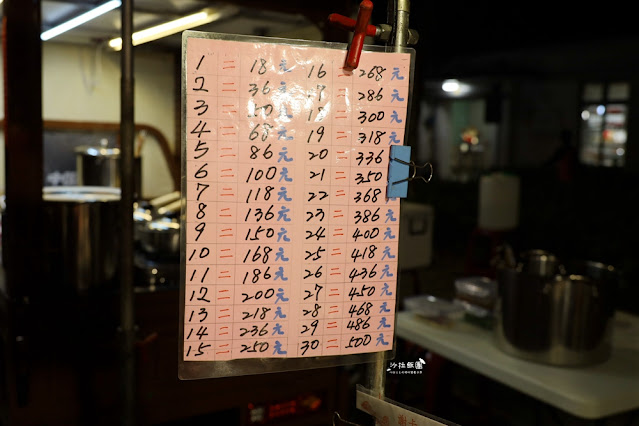 1 = 18元 16 = 268元
2 = 36元 17 = 286元
3 = 50元 18 = 300元
4 = 68元 19 = 318元
5 = 86元 20 = 336
6 = 100元 21 = 350
7 = 118元 22 = 368
8 = 136元 23 = 386元
9 = 150元 24 = 400元
10 = 168元 25 = 418元
11 = 186元 26 = 436元
12 = 200元 27 = 450元
13 = 218元 28 = 468元
14 = 236元 29 = 486元
15 = 250元 30 = 500元
沙拉飯團